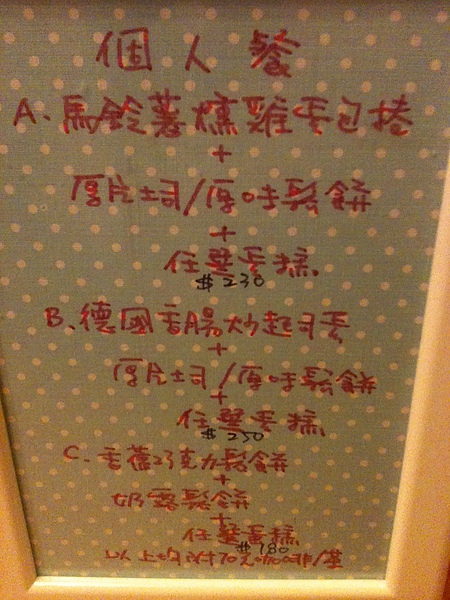 個人餐
A、馬鈴薯燻雞蛋包捲
+
厚片土司/原味鬆餅
+
任選蛋糕
$230
B、德國香腸炒起司蛋
+
厚片土司/原味鬆餅
+
任選蛋糕
$250
C、香蕉巧克力鬆餅
+
奶露鬆餅
+
任選蛋糕
$180
以上均附70元咖啡/茶